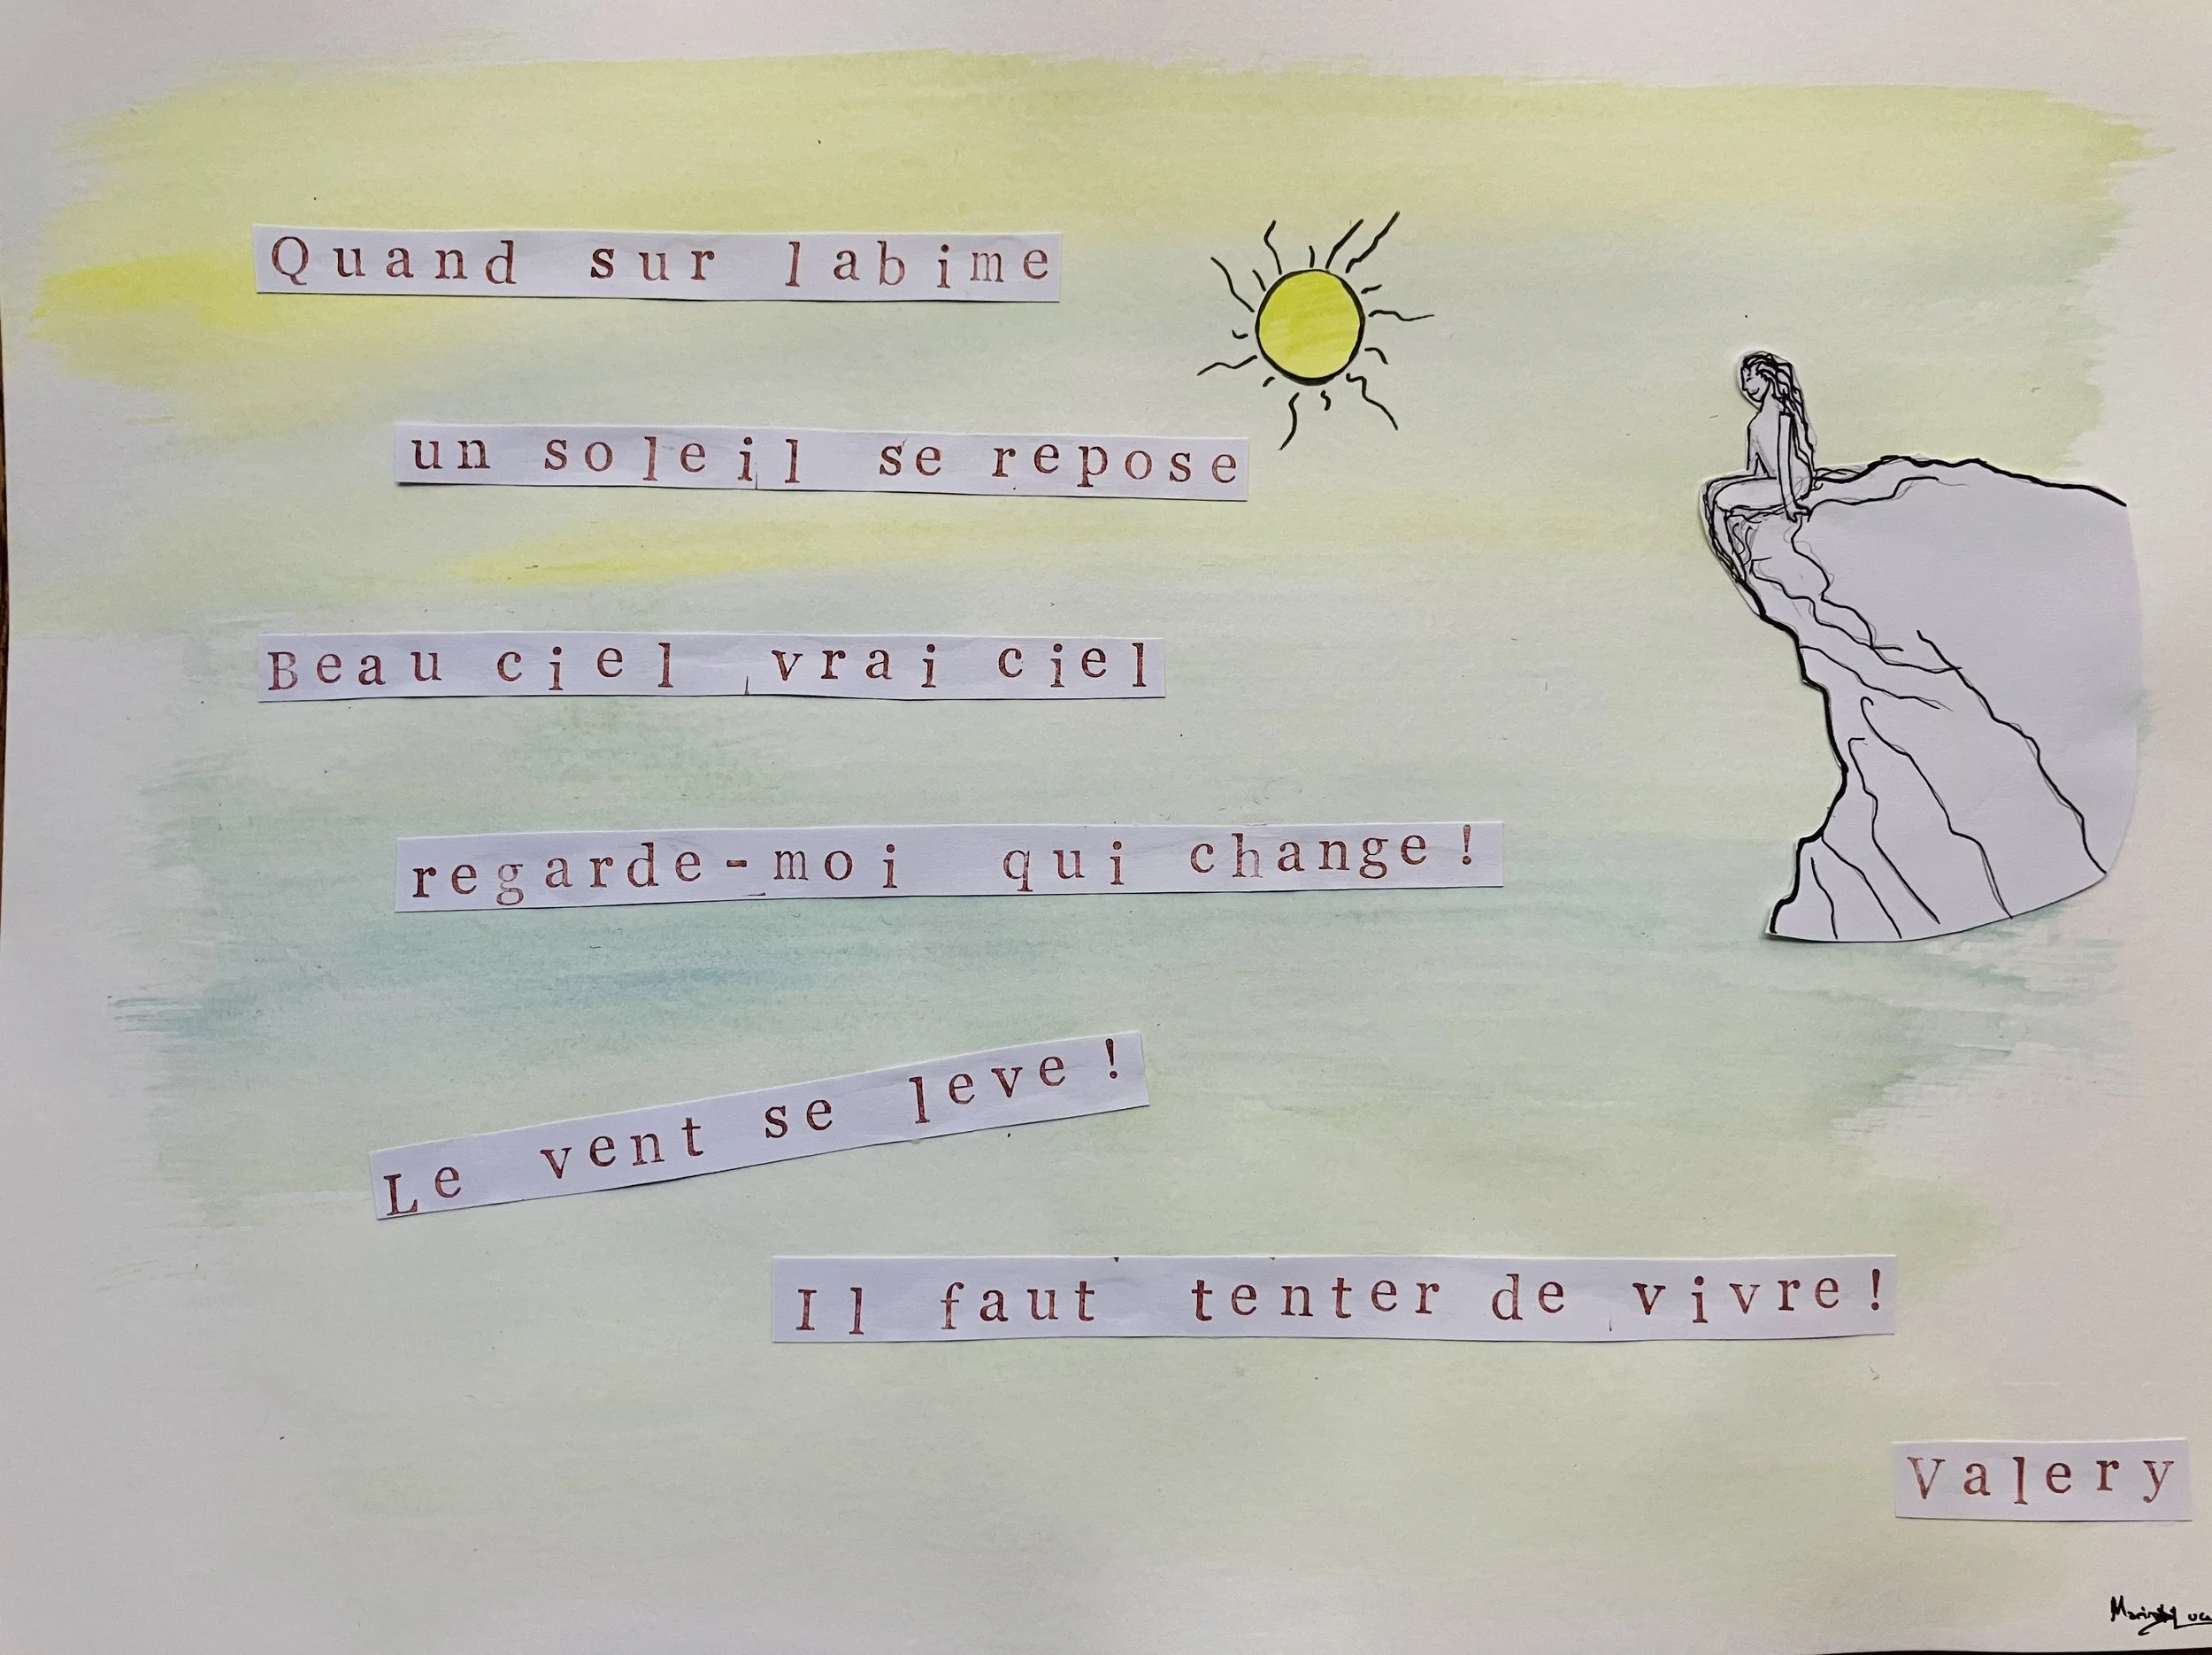 Quand sur labime
un soleil se repose
Beau ciel vrai ciel
regarde-moi qui change!
Le vent se leve!
Il faut tenter de vivre!
Valery